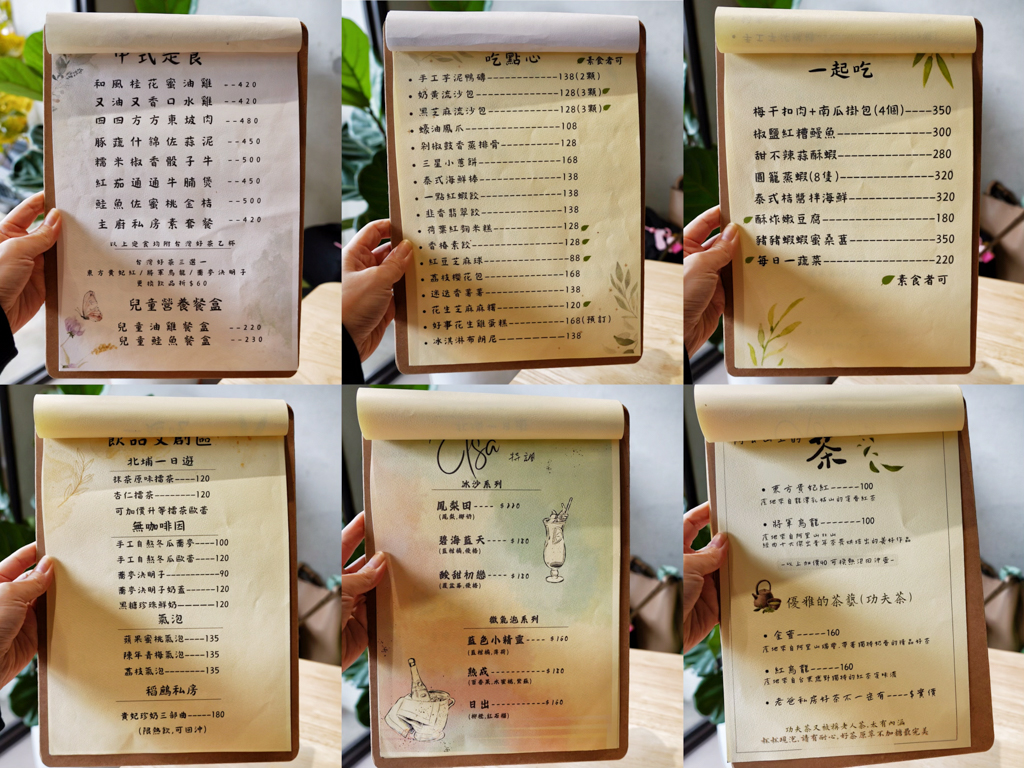 中式定食
和風桂花蜜油雞 --420
又油又香口水雞 --420
四四方方東坡肉 --480
豚蔬什錦佐蒜泥 --450
糯米椒香骰子牛 --500
紅茄通通牛腩煲 --450
鮭魚佐蜜桃金桔 --500
主廚私房素套餐 --420
以上定食均附台灣好茶乙杯
台灣好茶三選一
東方貴妃紅/將軍烏龍/蕎麥決明子
更換飲品折$60
兒童營養餐盒
兒童油雞餐盒 --220
兒童鮭魚餐盒 --230
吃點心
素食者可
手工芋泥鴨磚------------138(2顆)
奶黃流沙包--------------128(3顆)
黑芝麻流沙包------------128(3顆)
蠔油鳳爪----------------108
剁椒豉香蒸排骨----------128
三星小蔥餅--------------168
泰式海鮮棒--------------138
一點紅蝦餃--------------138
韭香翡翠餃--------------138
荷葉紅麴米糕------------128
香椿素餃----------------128
紅豆芝麻球--------------88
荔枝櫻花包--------------168
迷迭香薯薯--------------138
花生芝麻麻糬------------120
好事花生雞蛋糕----------168(預訂)
冰淇淋布朗尼------------138
一起吃
梅干扣肉+南瓜掛包(4個)----350
椒鹽紅糟鰻魚---------300
甜不辣蒜酥蝦---------280
圓籠蒸蝦(8隻)---------320
泰式桔醬拌海鮮---------320
酥炸嫩豆腐---------180
豬豬蝦蝦蜜桑葚---------350
每日一蔬菜---------220
素食者可
飲品文創區
北埔一日遊
抹茶原味擂茶----120
杏仁擂茶--------120
可加價升等擂茶歐蕾
無咖啡因
手工自熬冬瓜蕎麥----100
手工自熬冬瓜歐蕾----120
蕎麥決明子----------90
蕎麥決明子奶蓋------120
黑糖珍珠鮮奶------120
氣泡
蘋果蜜桃氣泡---135
陳年青梅氣泡---135
荔枝氣泡-------135
稻鵲私房
貴妃珍奶三部曲-----180
(限熱飲,可回沖)
Elsa 特調
冰沙系列
鳳梨田----
(鳳梨,椰奶)
碧海藍天---- $180
(藍柑橘,優格)
酸甜初戀---- $180
微氣泡系列
藍色小精靈---- $160
(藍柑橘,薄荷)
熟成-------- $180
(百香果,水蜜桃,紫蘇)
日出-------- $160
(柳橙,紅石榴)
茶
東方貴妃紅-----100
將軍烏龍-------100
產地來自阿里山
-以上加價90可換熱沖回沖壺-
優雅的茶藝(功夫茶)
金萱-----160
產地來自阿里山
紅烏龍----160
老爸私房好茶不一定有----$實價
功夫茶又被稱老人茶,太有內涵
叔叔現泡,請有耐心,好茶原來不加糖最完美